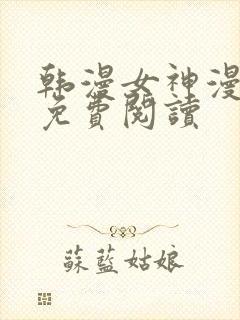 韩漫女神漫
免費閱讀
蘇藍姑娘